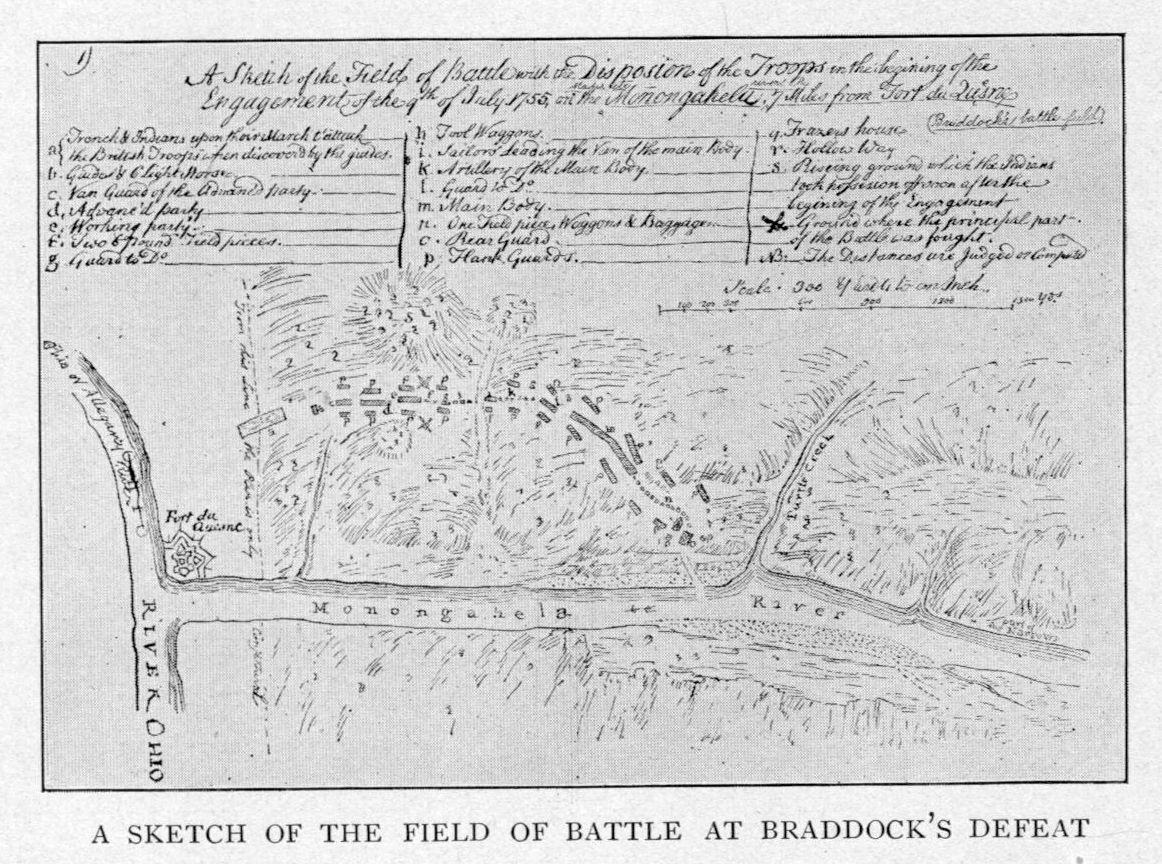 1)
A Sketch of the Field of Battle with the Disposion of the Troops in the begining of the
Engagement of the 9th of July 1755, on the Monongahela, 7 Miles from Fort du Quesne
(Braddock's battle field)
a French & Indians upon their March t'attack
the British Troops when discoverd by the guides.
b. Guides & 6 Light Horse
c. Van Guard of the Advanced party.
d. Advanc'd party
e. Working party.
f. Two 6 pound Field pieces.
g. Guard to Do
h Tool Waggons.
i. Sailors leading the Van of the main Body.
k. Artillery of the Main Body.
l. Guard to Do
m. Main Body.
n. One Field piece, Waggons & Baggage.
o. Rear Guard
p. Flank Guards.
q. Frazers house
r. Hollow Way
s. Riseing ground which the Indians
took possesion of soon after the
begining of the Engagement
Ground where the principal part
of the Battle was fought.
NB. The Distances are Judged or Computed
Scale. 300 Yards to an Inch.
Ohio or Allegany
From this Line the Rivers only
Fort du
Quesne
Turtle Creek
Monongahela River
RIVER OHIO
A SKETCH OF THE FIELD OF BATTLE AT BRADDOCK'S DEFEAT